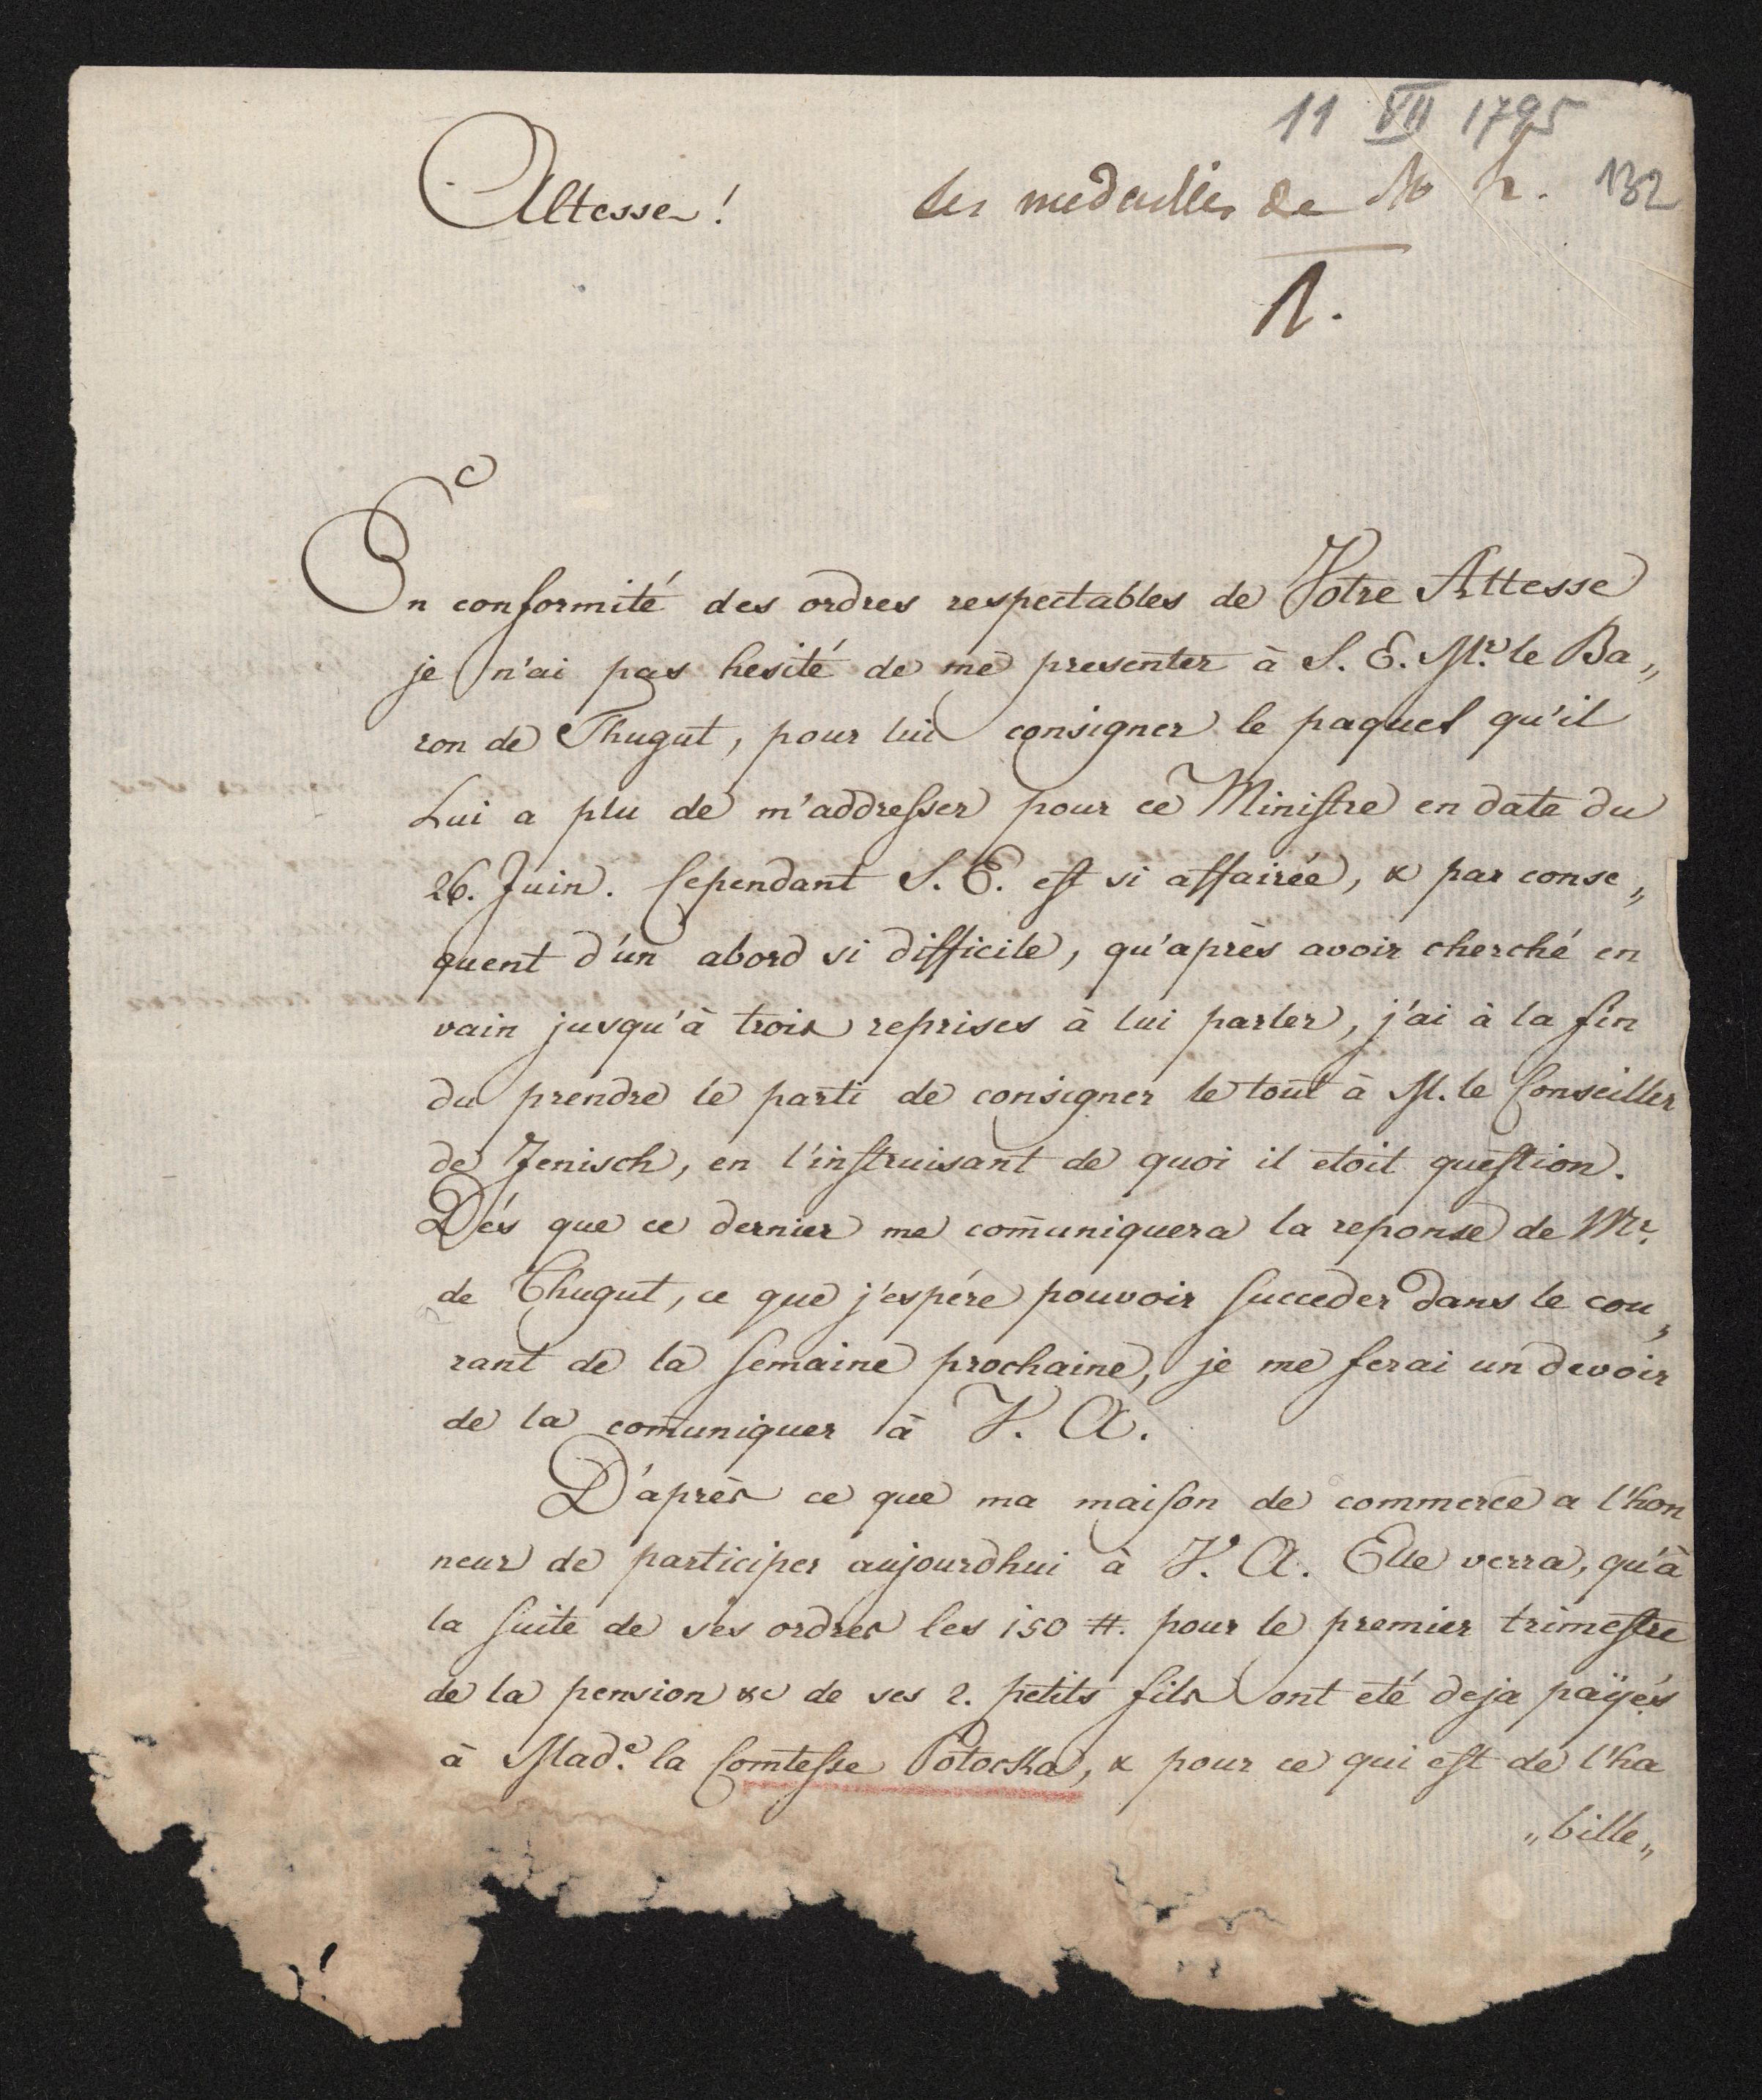 11 VII 1795
132
Altesse!
les medailles de
1.
En conformité des ordres respectables de Votre Altesse
je n'ai pas hesité de me presenter à S. E. Mr. le Ba„
ron de Thugut, pour lui consigner le paquet qu'il
Lui a plu de m'addresser pour ce Ministre en date du
26. Juin. Cependant S. E. est si affairée, & par conse„
quent d'un abord si difficile, qu'après avoir cherché en
vain jusqu'à trois reprises à lui parler, j'ai à la fin
du prendre le parti de consigner le tout à M. le Conseiller
de Jenisch, en l'instruisant de quoi il etoit question.
Dés que ce dernier me com̄uniquera la reponse de Mr.
de Thugut, ce que j'espére pouvoir succeder dans le cou„
rant de la semaine prochaine, je me ferai un devoir
de la com̄uniquer à V. A.
D'après ce que ma maison de commerce a l'hon
neur de participer aujourdhui à V. A. Elle verra, qu'à
la suite de ses ordres les 150 #. pour le premier trimestre
de la pension &c de ses 2. petits fils ont eté deja païjés
à Made. la Comtesse Potocka, & pour ce qui est de l'ha
„bille„